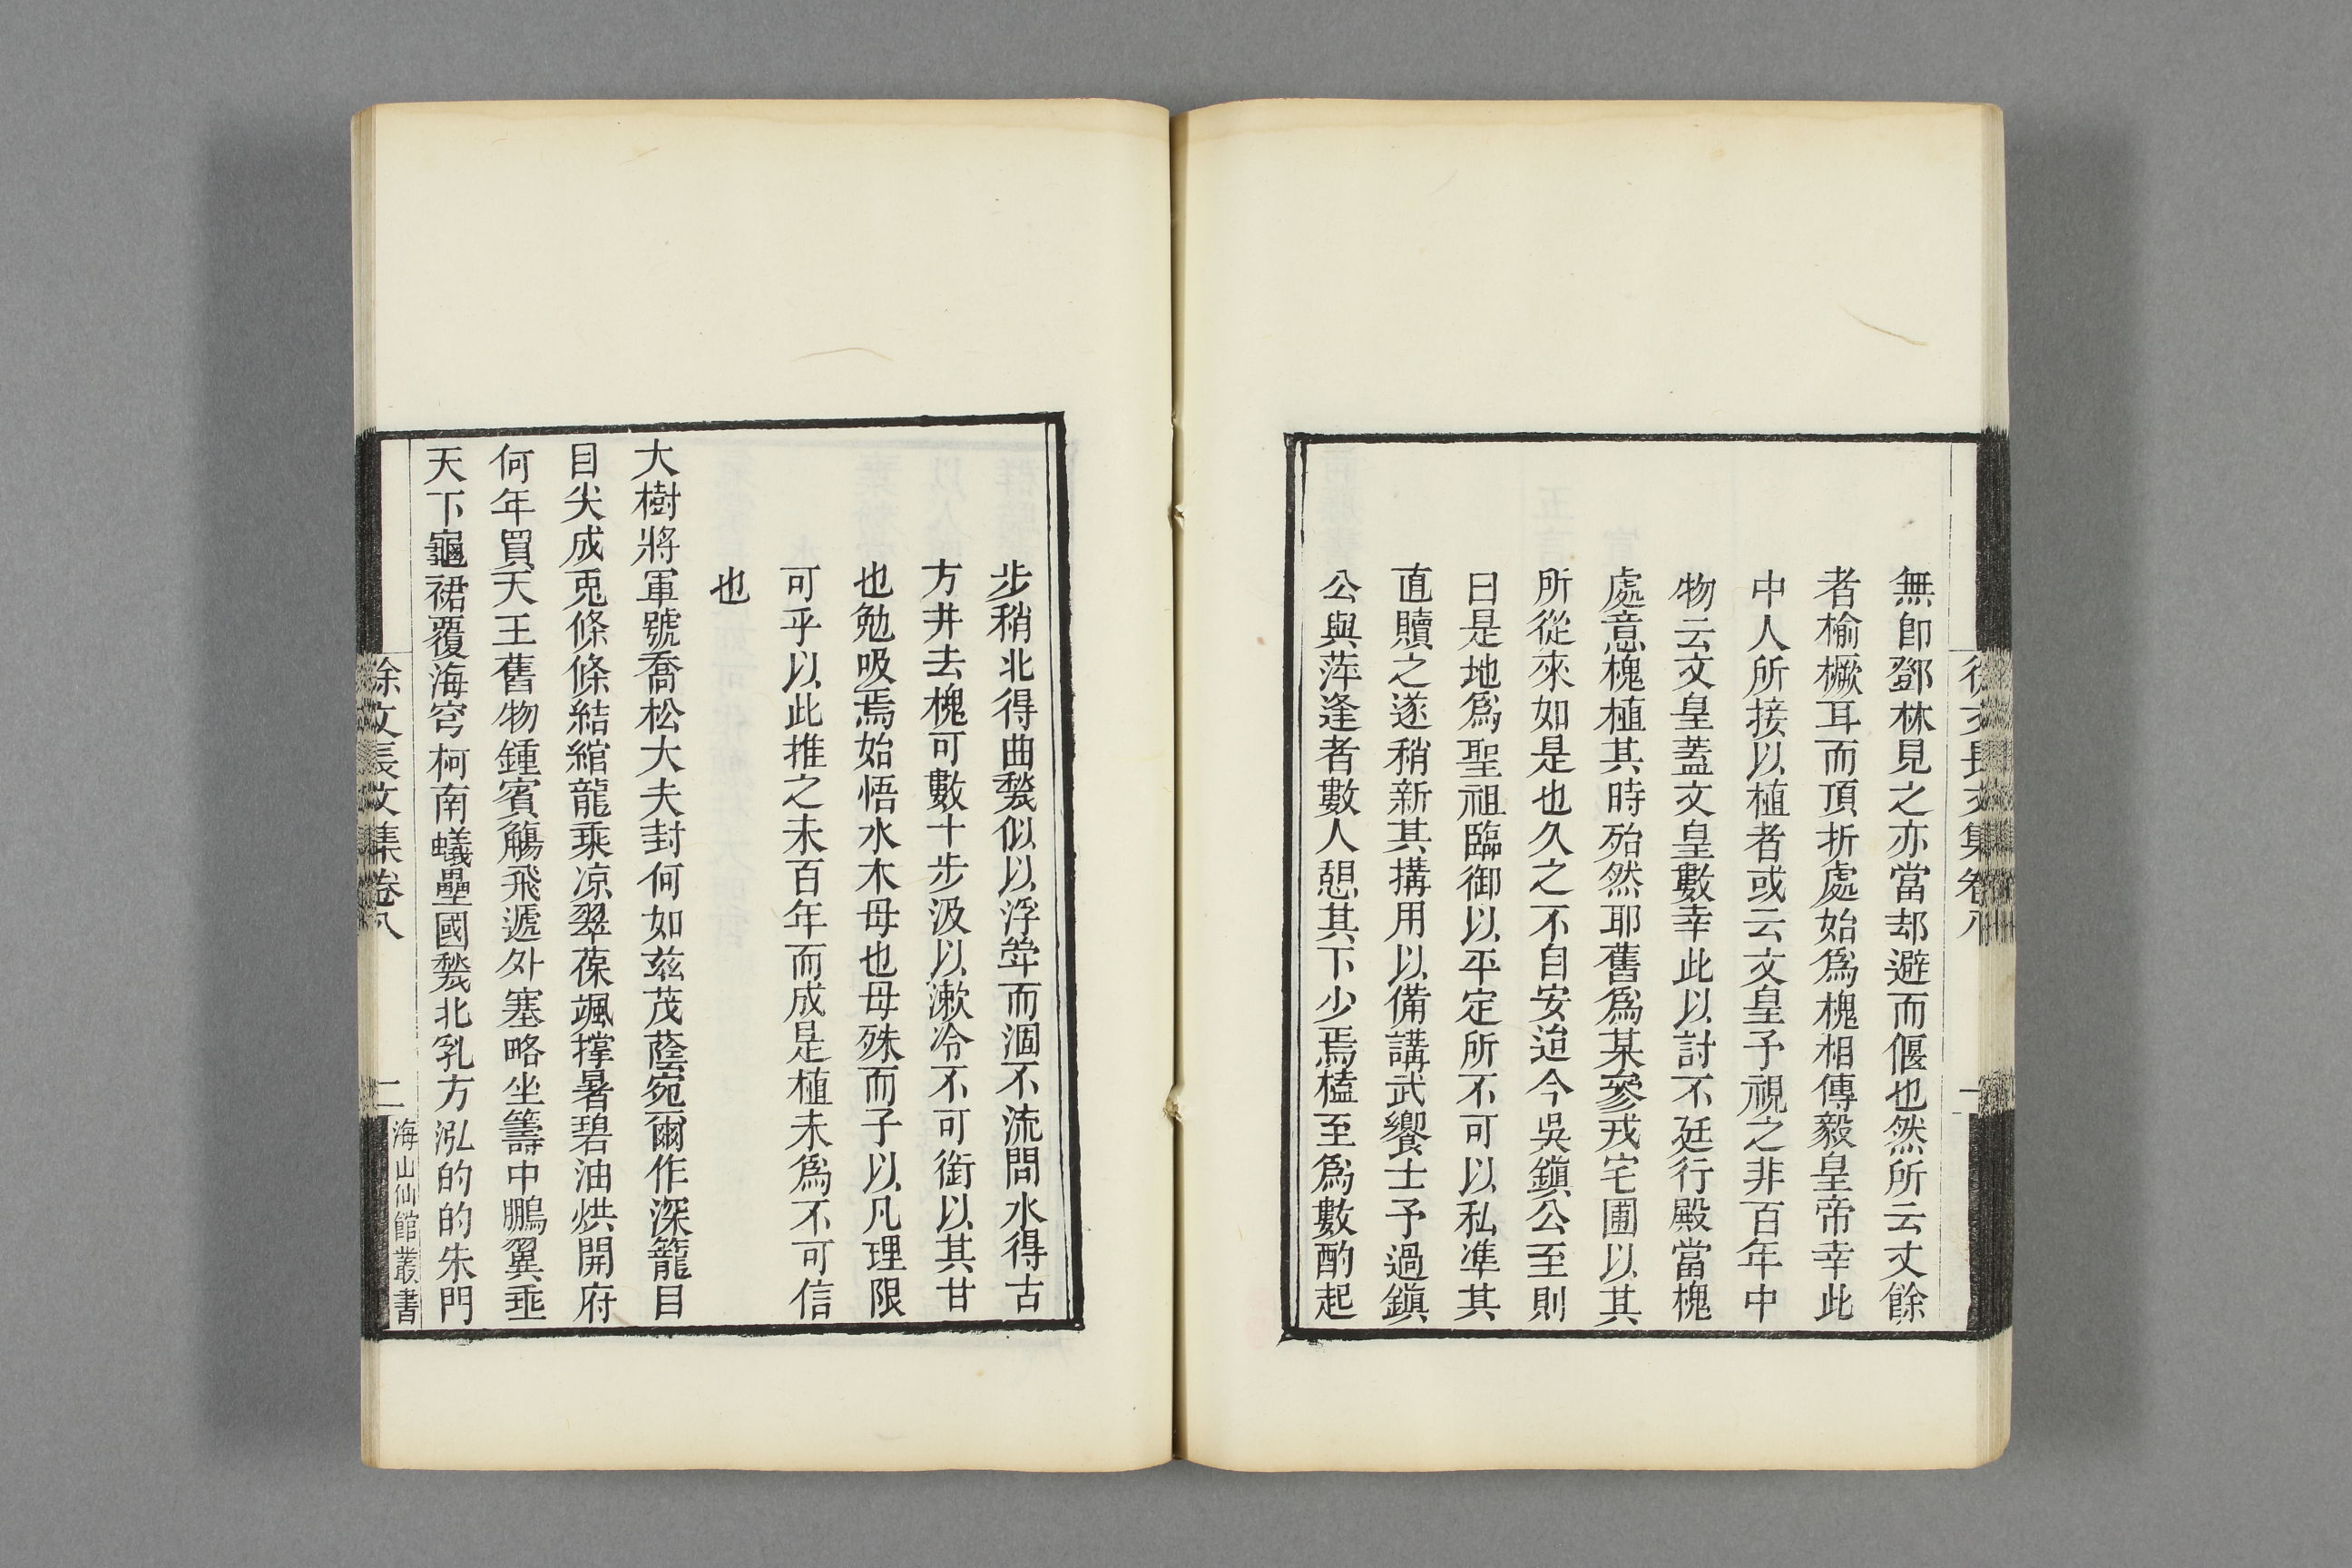 徐文長文集卷八
一
無卽鄧林見之亦當却避而偃也然所云丈餘
者榆橛耳而頂折處始爲槐相傳毅皇帝幸此
中人所接以植者或云文皇予視之非百年中
物云文皇蓋文皇數幸此以討不廷行殿當槐
處意槐植其時殆然耶舊爲某參戎宅圃以其
所從來如是也久之不自安迨今吳鎭公至則
曰是地爲聖祖臨御以平定所不可以私準其
直贖之遂稍新其搆用以備講武饗士予過鎭
公與萍逢者數人憩其下少焉榼至爲數酌起
步稍北得曲甃似以浮
而涸不流問水得古
方井去槐可數十步汲以漱冷不可銜以其甘
也勉吸焉始悟水木母也母殊而子以凡理限
可乎以此推之未百年而成是植未爲不可信
也
大樹將軍號喬松大夫封何如茲茂蔭宛爾作深籠目
目尖成兎條條結綰龍乘凉翠葆颯撑暑碧油烘開府
何年買天王舊物鍾賓觴飛遞外塞略坐籌中鵬翼垂
天下龜裙覆海穹柯南蟻壘國甃北乳方泓的的朱門
徐文長文集卷八
二
海山仙館叢書